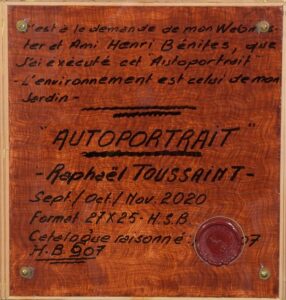 C'est à la demande de mon Webmas-
ter et Ami Henri Bénites, que
j'ai exécuté cet "Autoportrait"
- L'environnement est celui de mon
Jardin -
"AUTOPORTRAIT"
- Raphaël TOUSSAINT -
Sept/Oct/Nov. 2020
Format 27X25 - H.S.B
Catalogue raisonné: 07
H.B 907